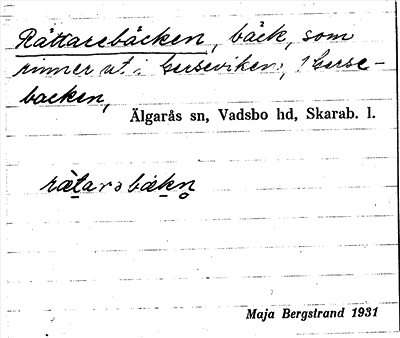 Rättarebäcken, bäck, som
rinner ut i Gerseviken, 1 Gerse-
backen,
Älgarås sn, Vadsbo hd, Skarab. l.
rätarəbäkn
Maja Bergstrand 1931